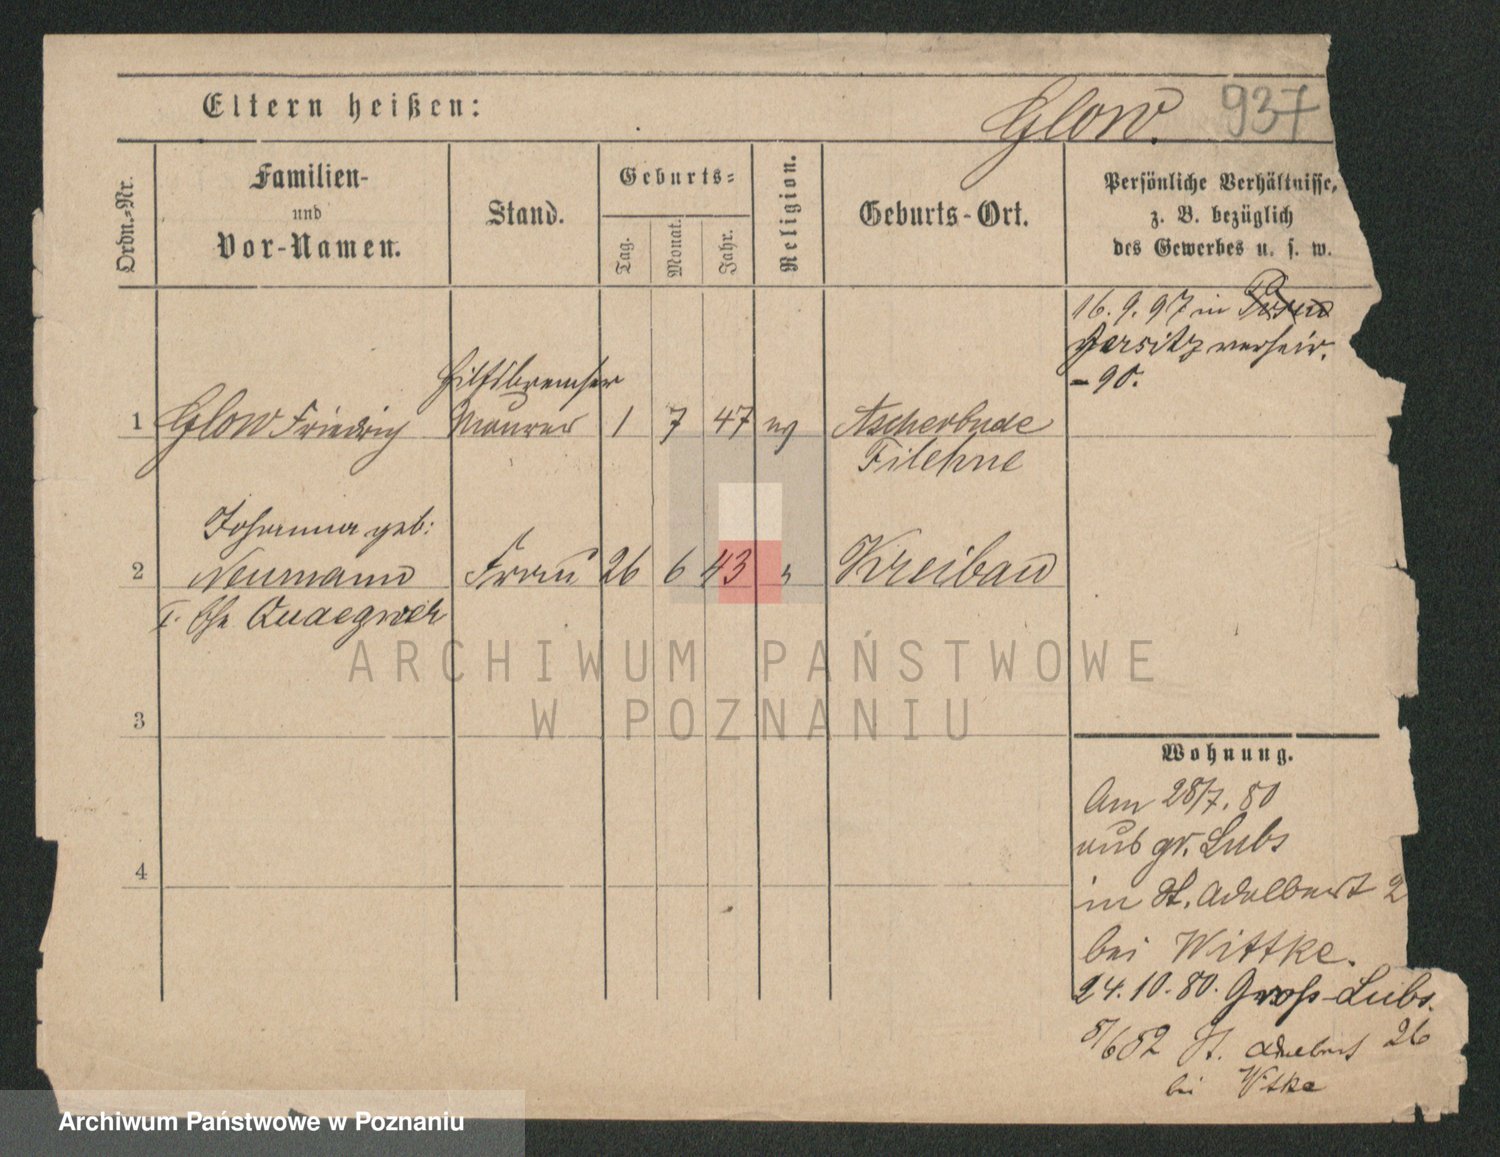 Eltern heißen:
Glow.
937
Ordn.-Nr.
Familien-
und
Vor-Namen.
Stand.
Geburts-
Tag.
Monat.
Jahr.
Religion.
Geburts-Ort.
Persönliche Verhältnisse,
z. B. bezüglich
des Gewerbes u. s. w.
16. 9. 97 in Posen
Jersitz verheir.
- 90.
Hilfsbremser
1 Glow Friedrich Maurer 1 7 47 ev Ascherbude
Filehne
Johanna geb:
2 Neumann Frau 26 6 43 " Kreibau
I. Ehe
3
4
Wohnung.
Am 28/7. 80
aus gr. Lubs
in St. Adalbert 2
bei Wittke.
24. 10. 80. Groß-Lubs.
5/6 82 St. Adalbert 26
bei Witke
ARCHIWUM PAŃSTWOWE
W POZNANIU
Archiwum Państwowe w Poznaniu